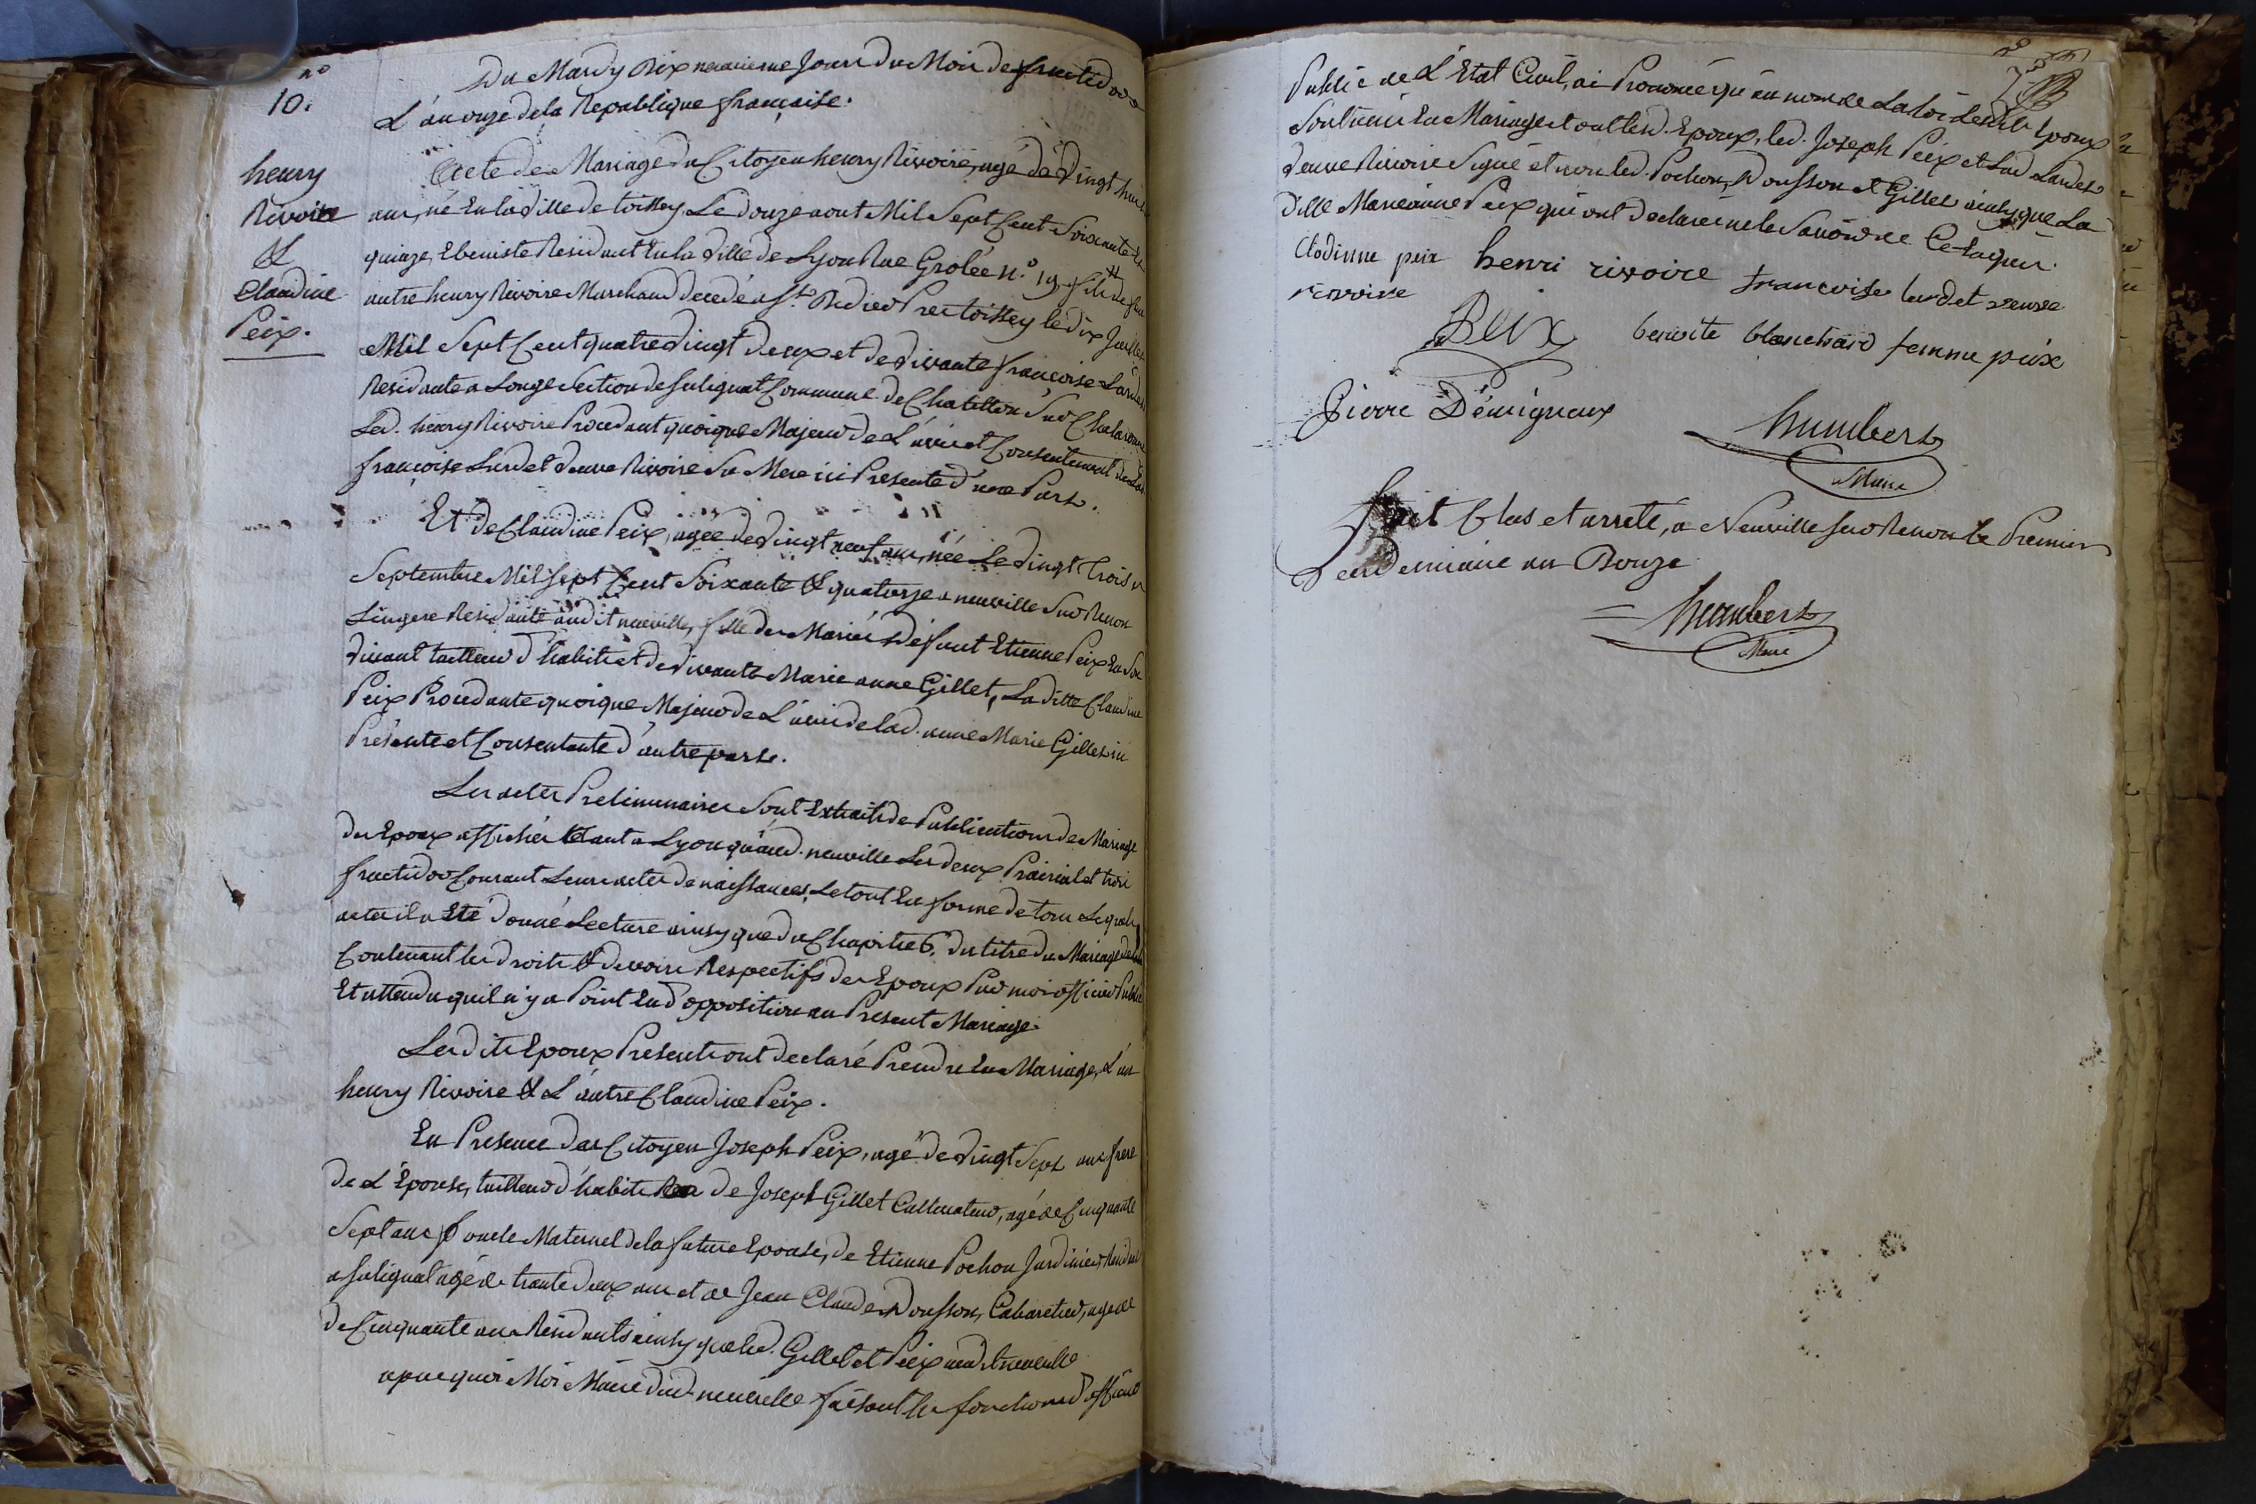 n° 10.
henry
Rivoire
&
Claudine
Peix.
Du Mardy Dix neuvieme Jour du Mois de fructidor
L'an onze de la Republique française.
Acte de Mariage du Citoyen henry Rivoire, agé de vingt huit
ans, né En la ville de toissey Le douze aout Mil Sept Cent Soixante et
quinze, Ebeniste Residant En la ville de Lyon Rue Grolée n.° 19, fils de feu
autre henry Rivoire Marchand decedé a St. Didier Pres toissey le dix Juillet
Mil Sept Cent quatre vingt deux et de vivante françoise Lardet
Residante a Longe Section de Sulignat Commune de Chatillon Sur Chalaronne
Led. henry Rivoire Procedant quoique Majeur de L'avis et Consentement de lad.
françoise Lardet veuve Rivoire Sa Mere ici Presente d'une Part.
Et de Claudine Peix, agée de vingt neuf ans, née Le vingt trois
Septembre Mil Sept Cent Soixante & quatorze a neuville Sur Renon
Lingere Residante audit neuville, fille des Mariés défunt Etienne Peix En Son
vivant tailleur d'habits et de vivante Marie anne Gillet, Laditte Claudine
Peix Procedante quoique Majeur de L'avis de lad. anne Marie Gillet ici
Présente et Consentante d'autre part.
Les actes Preliminaires Sont Extraits de Publications de Mariage
des Epoux affichés tant a Lyon qu'aud. neuville Les deux Prairial et trois
fructidor Courant Leurs actes de naissances, Le tout En forme de tous Lesquels
actes il a Eté donné Lecture ainsy que du Chapitre 6. du titre du Mariage
Contenant les droits & devoirs Respectifs des Epoux Par moi officier Public
Et attendu quil n'y a Point Eu d'opposition au Present Mariage
Lesdits Epoux Presents ont declaré Prendre En Mariage, L'un
henry Rivoire & L'autre Claudine Peix.
En Presence des Citoyen Joseph Peix, agé de vingt Sept ans frere
de L'Epouse, tailleur d'habits de Joseph Gillet Cultivateur, agé de Cinquante
Sept ans oncle Maternel de la future Epouse, de Etienne Pochon Jardinier, Residant
a Sulignat agé de trante deux ans et de Jean Claude Dousson, Cabaretier, age de
de Cinquante ans Residants ainsy que led. Gillet et Peix audit neuville
apres quoi Moi Maire dud. neuville faisant les fonctions d'officier
Public de L'Etat Civil, ai Prononcé qu'au nom de La loi Lesdits Epoux
Sont unis En Mariage et ont lesd. Epoux, led. Joseph Peix et Lad. Lardet
veuve Rivoire Signé et non led. Pochon, Dousson et Gillet ainsy que La
ditte Marieanne Peix qui ont declaré ne le Savoir de Ce Enquis.
Clodinne peix henri rivoire francoise lardet veuve
rivoire
Peix benoite blanchard femme peix
Pierre Démignaux
humbert
Maire
fait Clos et arreté, a Neuville Sur Renon le Premier
vendemiaire an Douze
humbert
Maire